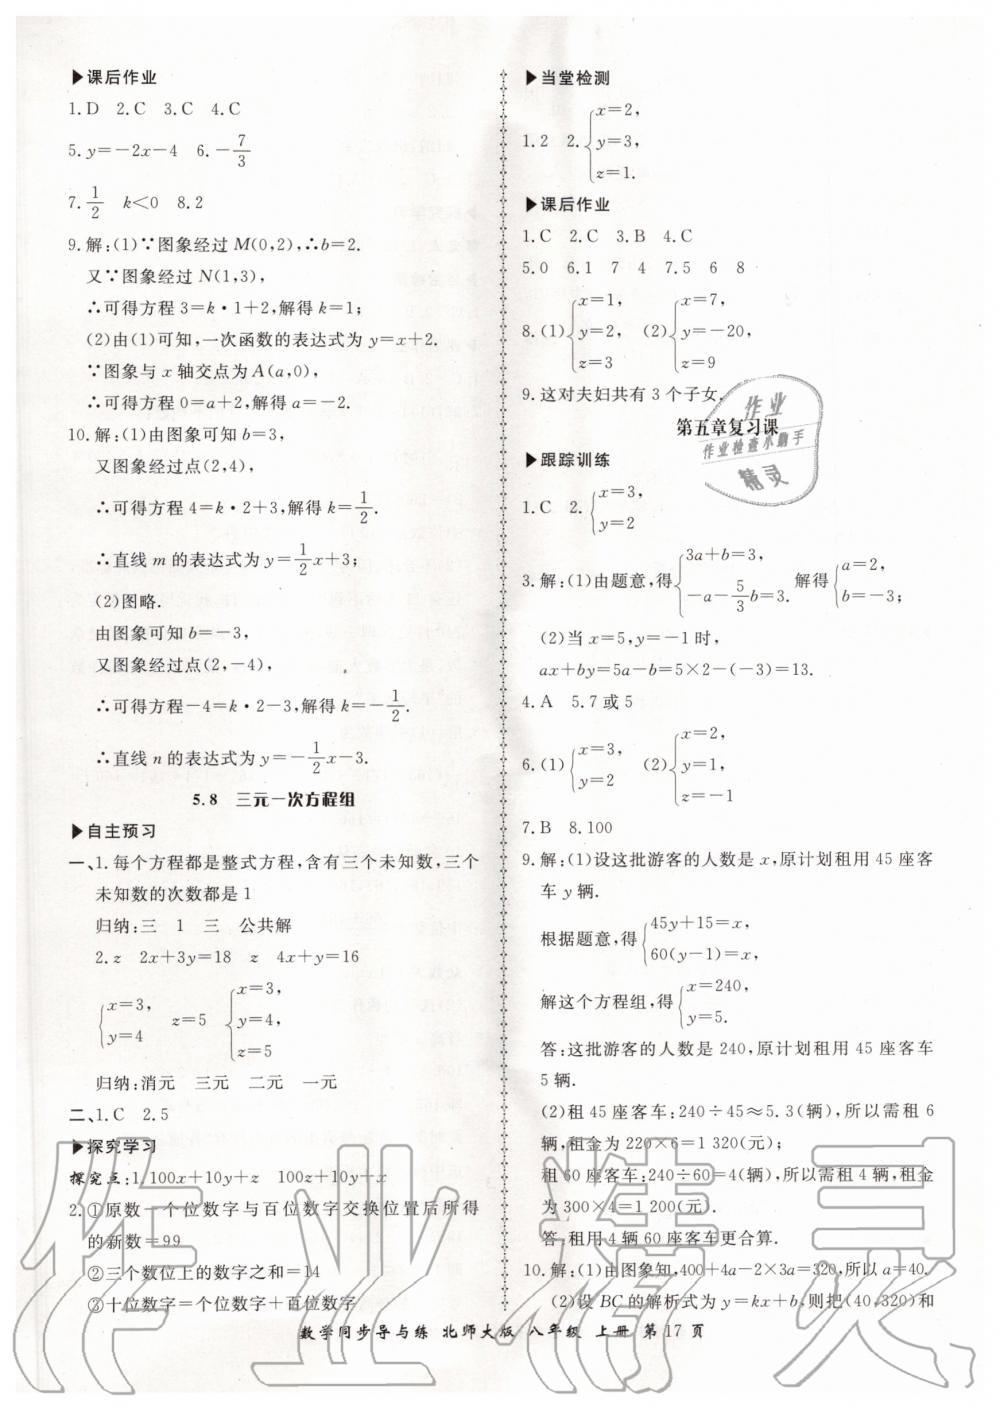 ▶课后作业
1.D 2.C 3.C 4.C
5.y=-2x-4 6.-7/3
7.1/2 k<0 8.2
9.解:(1)∵图象经过M(0,2),∴b=2.
又∵图象经过N(1,3),
∴可得方程3=k·1+2,解得k=1;
(2)由(1)可知,一次函数的表达式为y=x+2.
∵图象与x轴交点为A(a,0),
∴可得方程0=a+2,解得a=-2.
10.解:(1)由图象可知b=3,
又图象经过点(2,4),
∴可得方程4=k·2+3,解得k=1/2.
∴直线m的表达式为y=1/2x+3;
(2)图略.
由图象可知b=-3,
又图象经过点(2,-4),
∴可得方程-4=k·2-3,解得k=-1/2.
∴直线n的表达式为y=-1/2x-3.
5.8 三元一次方程组
▶自主预习
一、1.每个方程都是整式方程,含有三个未知数,三个
未知数的次数都是1
归纳:三 1 三 公共解
2.z 2x+3y=18 z 4x+y=16
{x=3, y=4 z=5 {x=3, y=4, z=5
归纳:消元 三元 二元 一元
二、1.C 2.5
▶探究学习
探究点:1.100x+10y+z 100z+10y+x
2.①原数-个位数字与百位数字交换位置后所得
的新数=99
②三个数位上的数字之和=14
③十位数字=个位数字+百位数字
▶当堂检测
1.2 2.{x=2, y=3, z=1.
▶课后作业
1.C 2.C 3.B 4.C
5.0 6.1 7 4 7.5 6 8
8.(1){x=1, y=2, z=3 (2){x=7, y=-20, z=9
9.这对夫妇共有3个子女.
第五章复习课
▶跟踪训练
1.C 2.{x=3, y=2
3.解:(1)由题意,得{3a+b=3, -a-5/3b=3. 解得{a=2, b=-3;
(2)当x=5,y=-1时,
ax+by=5a-b=5×2-(-3)=13.
4.A 5.7或5
6.(1){x=3, y=2 (2){x=2, y=1, z=-1
7.B 8.100
9.解:(1)设这批游客的人数是x,原计划租用45座客
车y辆.
根据题意,得{45y+15=x, 60(y-1)=x,
解这个方程组,得{x=240, y=5.
答:这批游客的人数是240,原计划租用45座客车
5辆.
(2)租45座客车:240÷45≈5.3(辆),所以需租6
辆,租金为220×6=1 320(元);
租60座客车:240÷60=4(辆),所以需租4辆,租金
为300×4=1 200(元).
答:租用4辆60座客车更合算.
10.解:(1)由图象知,400+4a-2×3a=320,所以a=40.
(2)设BC的解析式为y=kx+b,则把(40,320)和
数学同步导与练 北师大版 八年级 上册 第17页
作业
作业检查小助手
精灵
作业精灵